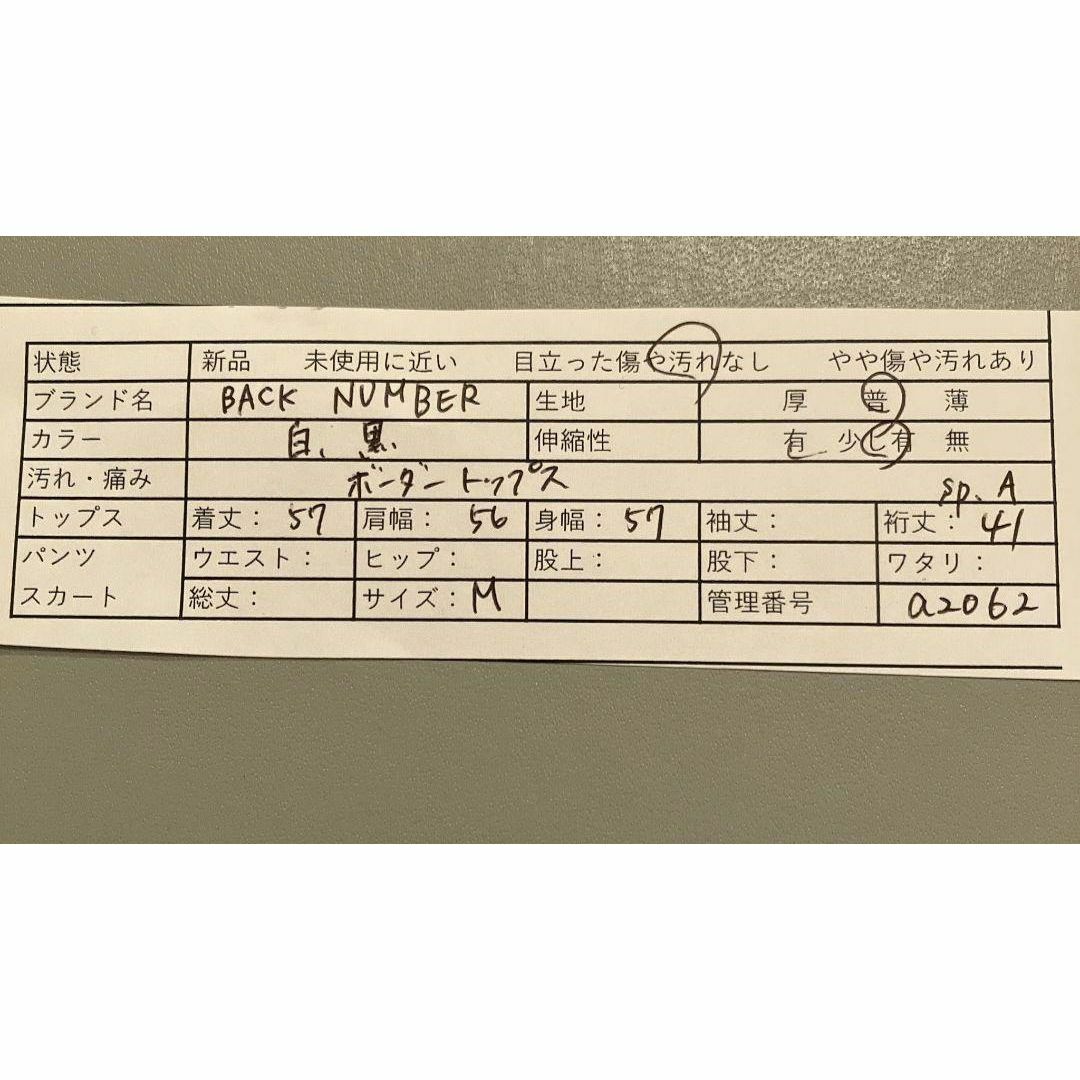 状態 新品 未使用に近い 目立った傷や汚れなし やや傷や汚れあり
ブランド名 BACK NUMBER 生地 厚 普 薄
カラー 白、黒 伸縮性 有 少し有 無
汚れ・痛み ボーダートップス sp、A
トップス 着丈: 57 肩幅: 56 身幅: 57 袖丈: 裄丈: 41
パンツ ウエスト: ヒップ: 股上: 股下: ワタリ:
スカート 総丈: サイズ: M 管理番号 a2062